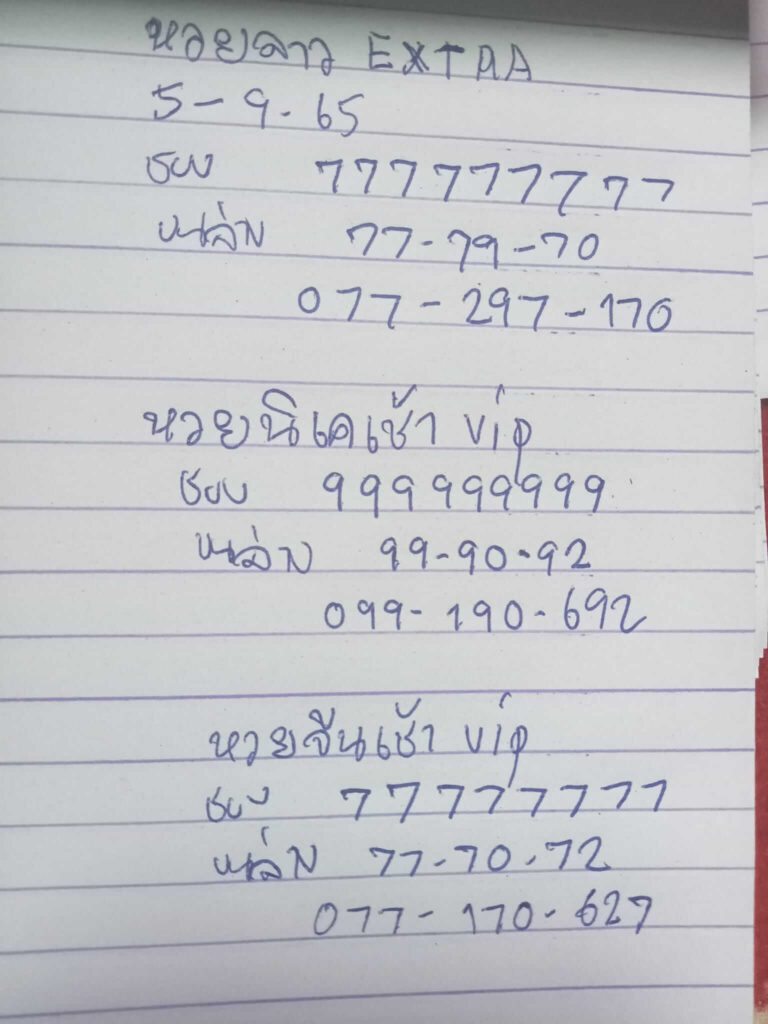 หวยลาว EXTRA
5-9.65
ชอบ 777777777
บนล่าง 77-79-70
077-297-170
หวยนิเคเช้า vip
ชอบ 999999999
บนล่าง 99-90.92
099-190-692
หวยจีนเช้า vip
ชอบ 77777777
บนล่าง 77-70.72
077-170-627